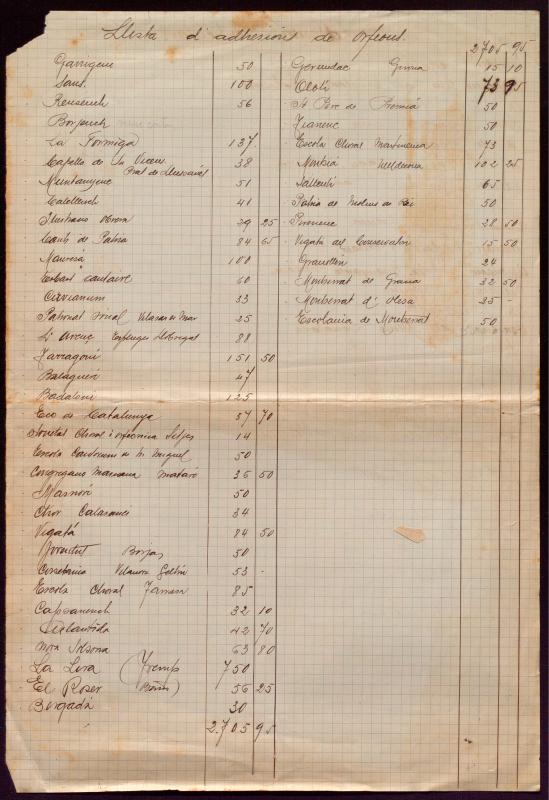 Llista d'adhesions de orfeons
Garriguenc 50
Sans. 100
Reusench 56
Borjench
La Formiga 137
Capella de St Vicens 38
Prat de Llussanés
Muntanyenc 51
Calellench 41
Illustració Obrera 29 25
Cants de Patria 84 65
Manresa 100
Esbart cantaire 60
Cirvianum 33
Patronat Social Vilasar de Mar 25
L'Avenç Esplugas Llobregat 88
Tarragoní 151 50
Balaguerí 47
Badaloní 125
Eco de Catalunya 37 70
Societat Choral i orfeónica Sitjes 14
Escola Cantorum de St Miquel 50
Congregació Mariana Mataró 36 50
Masnoví 50
Chor Calasanci 34
Vigatà 84 50
Joventut Borjas 50
Vilanova Geltrú 53 -
Escola Choral Tarrasa 85
Capsanench 32 10
Atlantida 42 70
Nova Solsona 63 80
La Lira (Tremp 7 50
El Roser 56 25
Bergadà 30
2.705 95
2705 95
Gerundenc Girona 15 10
Olotí 73 95
St Pere de Premiá 50
Tianenc 50
Escola Choral Martinenca 73
102 25
Sallentí 65
Patria de Molins de Rei 50
Pirinenc 28 50
Vigatà del Conservatori 15 50
Granollerí 24
Montserrat de Gracia 32 50
Montserrat d'Olesa 25 -
Escolania de Montserrat 50